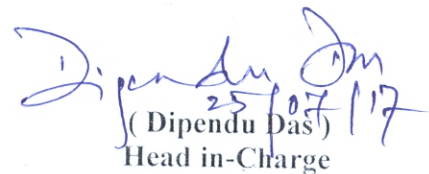 Dipendu Das
25/07/17
( Dipendu Das )
Head in-Charge